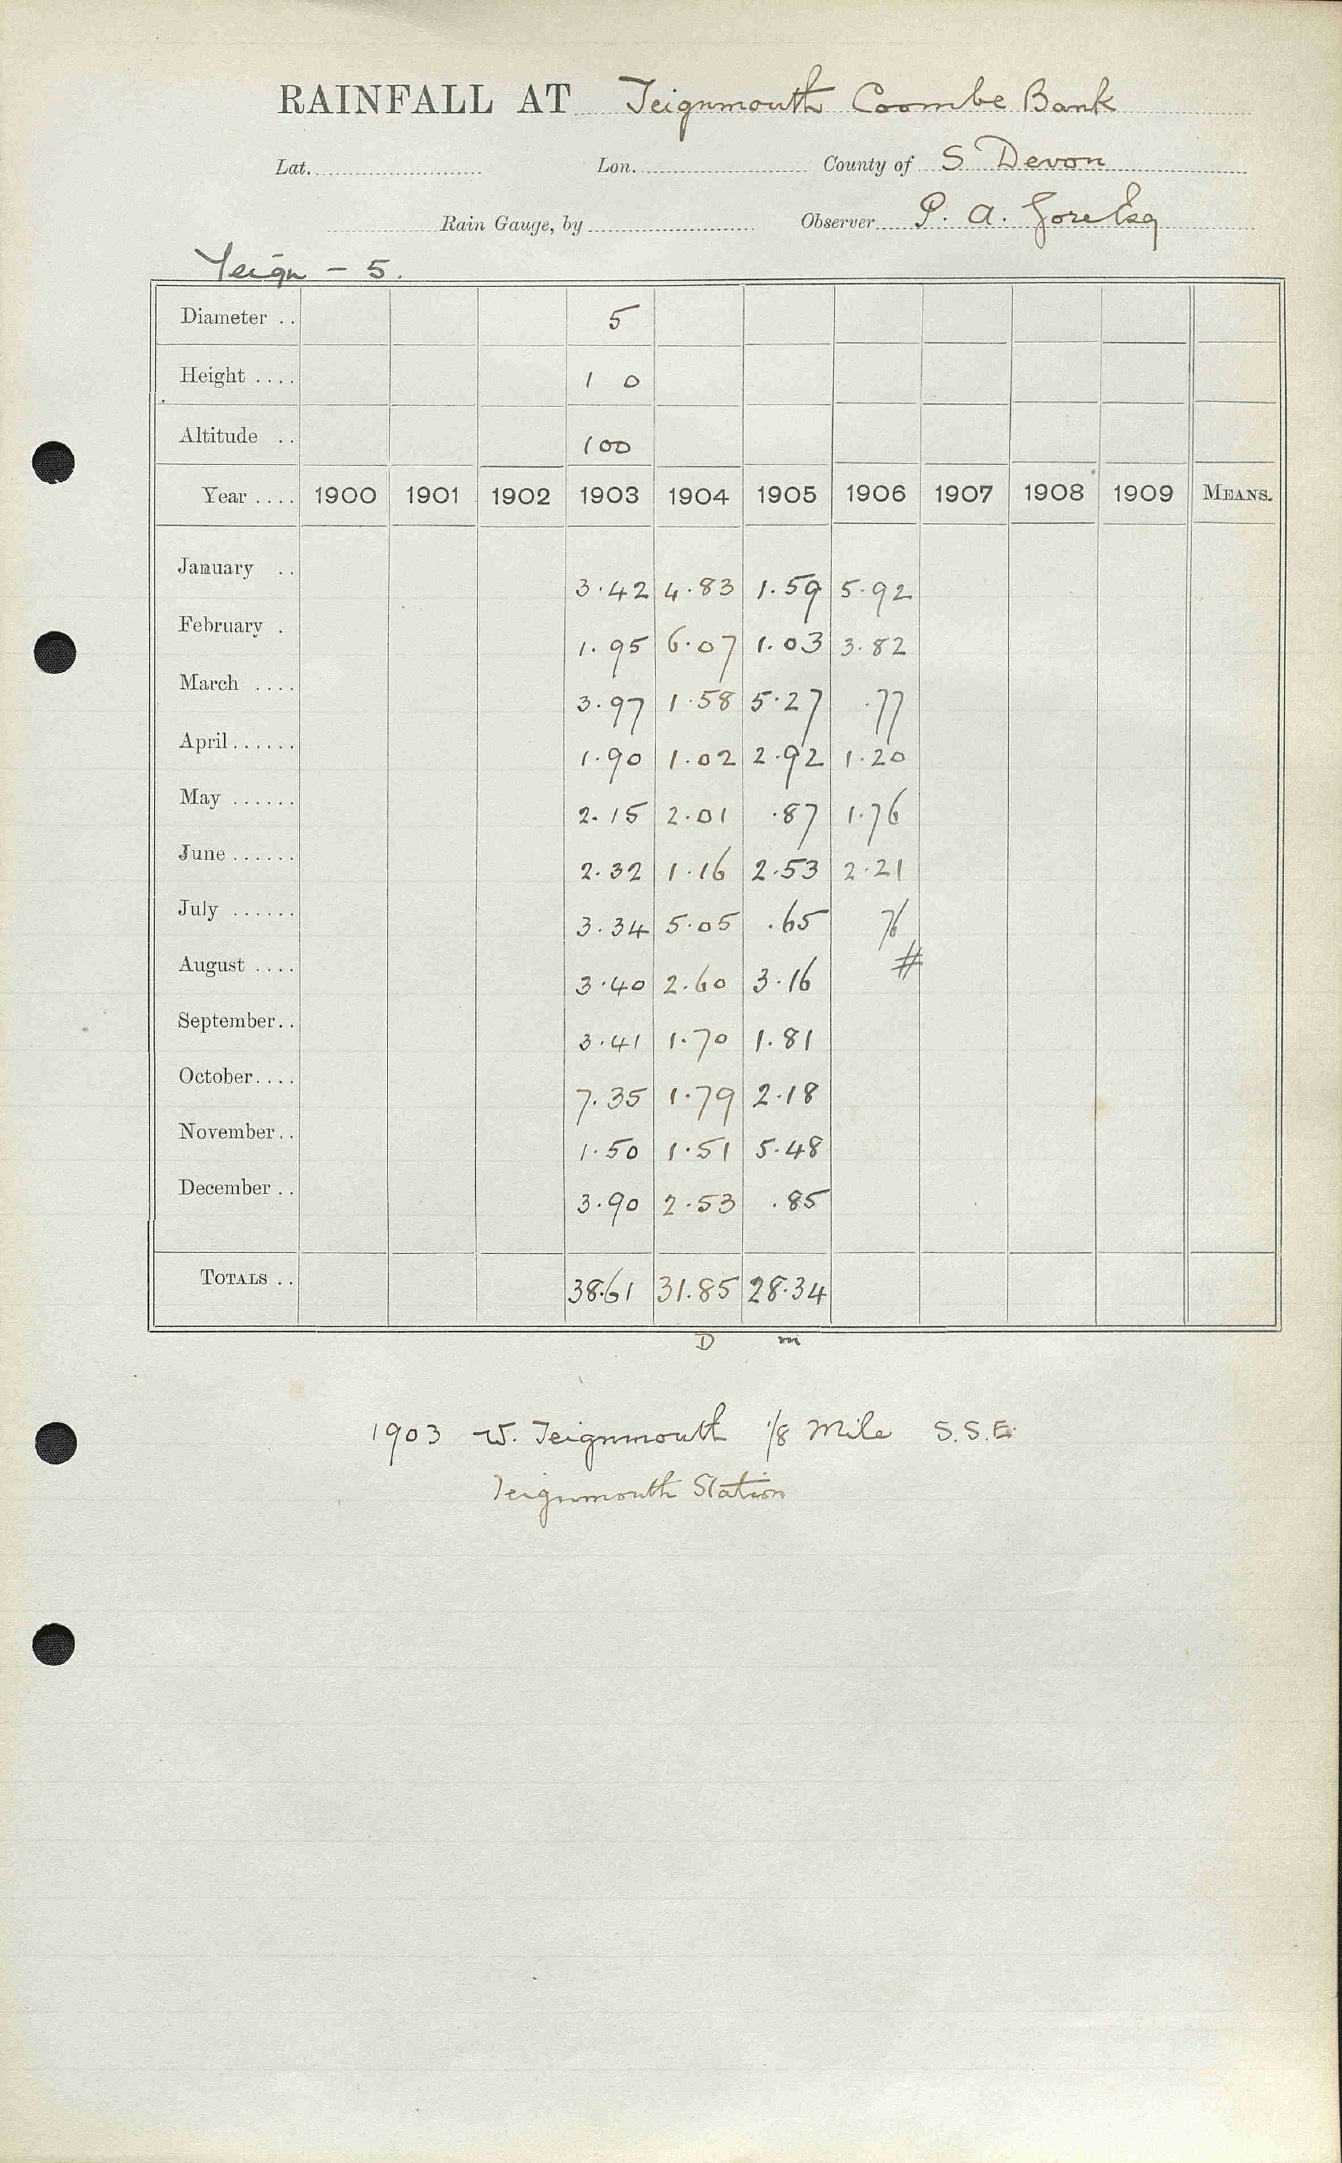 RAINFALL AT Teignmouth Coombe Bank
Lat. Lon. County of S Devon
Rain Gauge, by Observer P. A. Gore Esq
Teign - 5.
Diameter .. 5
Height .... 1 0
Altitude .. 100
Year .... 1900 1901 1902 1903 1904 1905 1906 1907 1908 1909 MEANS.
January .. 3.42 4.83 1.59 5.92
February . 1.95 6.07 1.03 3.82
March .... 3.97 1.58 5.27 .77
April...... 1.90 1.02 2.92 1.20
May ...... 2.15 2.01 .87 1.76
June ...... 2.32 1.16 2.53 2.21
July ...... 3.34 5.05 .65 76
August .... 3.40 2.60 3.16 #
September.. 3.41 1.70 1.81
October.... 7.35 1.79 2.18
November.. 1.50 1.51 5.48
December .. 3.90 2.53 .85
TOTALS .. 38.61 31.85 28.34
D m
1903 W. Teignmouth 1/8 Mile S.S.E.
Teignmouth Station